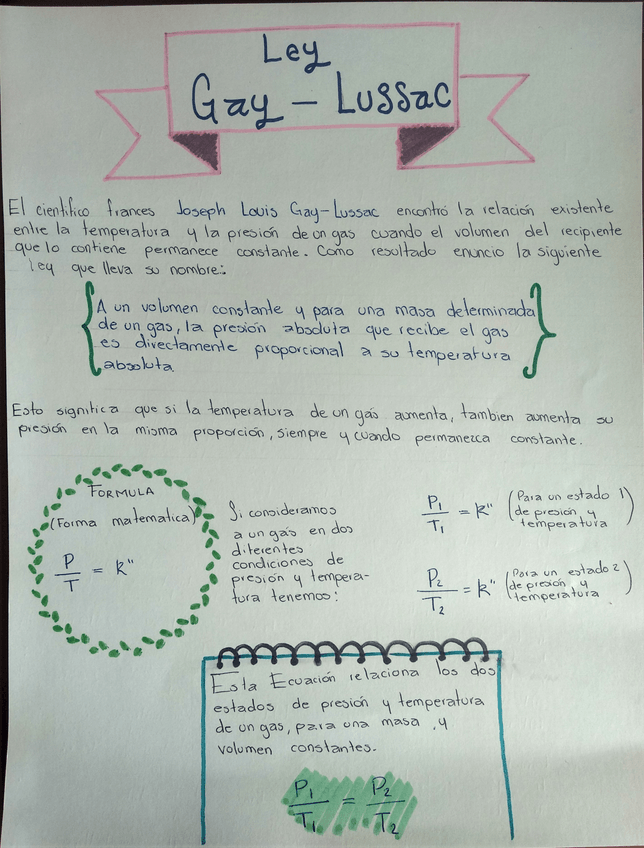 Ley
Gay - Lussac
El cientifico frances Joseph Louis Gay-Lussac encontró la relación existente
entre la temperatura y la presión de un gas cuando el volumen del recipiente
que lo contiene permanece constante. Como resultado enuncio la siguiente
ley que lleva su nombre:
A un volumen constante y para una masa determinada
de un gas, la presión absoluta que recibe el gas
es directamente proporcional a su temperatura
absoluta.
Esto significa que si la temperatura de un gas aumenta, tambien aumenta su
presión en la misma proporción, siempre y cuando permanezca constante.
FORMULA
(Forma matematica)
P/T = K"
Si consideramos
a un gas en dos
diferentes
condiciones de
presión y tempera-
tura tenemos:
P1/T1 = K" (Para un estado 1
de presión y
temperatura)
P2/T2 = K" (Para un estado 2
de presión y
temperatura)
Esta Ecuación relaciona los dos
estados de presión y temperatura
de un gas, para una masa y
volumen constantes.
P1/T1 = P2/T2